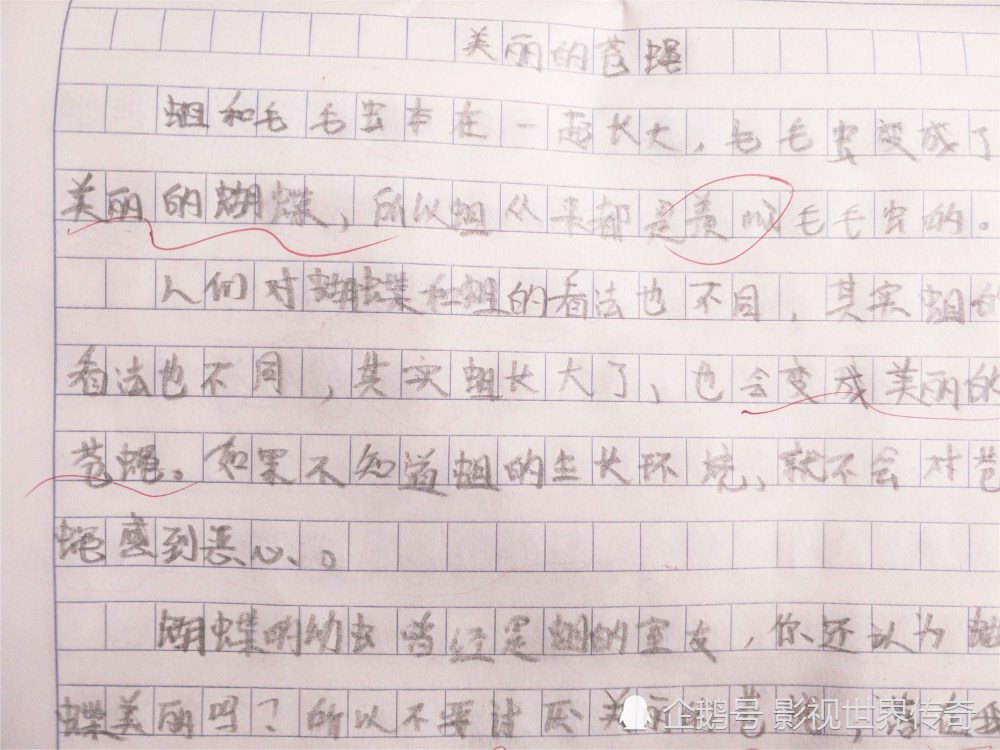 美丽的苍蝇
蛆和毛毛虫本在一起长大，毛毛虫变成了
美丽的蝴蝶，所以蛆从来都是羡 毛毛虫的。
人们对蝴蝶和蛆的看法也不同，其实蛆的
看法也不同，其实蛆长大了，也会变成美丽的
苍蝇。如果不知道蛆的生长环境，就不会对苍
蝇感到恶心。
蝴蝶的幼虫曾经是蛆的室友，你还认为蝴
蝶美丽吗？所以不要讨厌美丽 苍
企鹅号 影视世界传奇